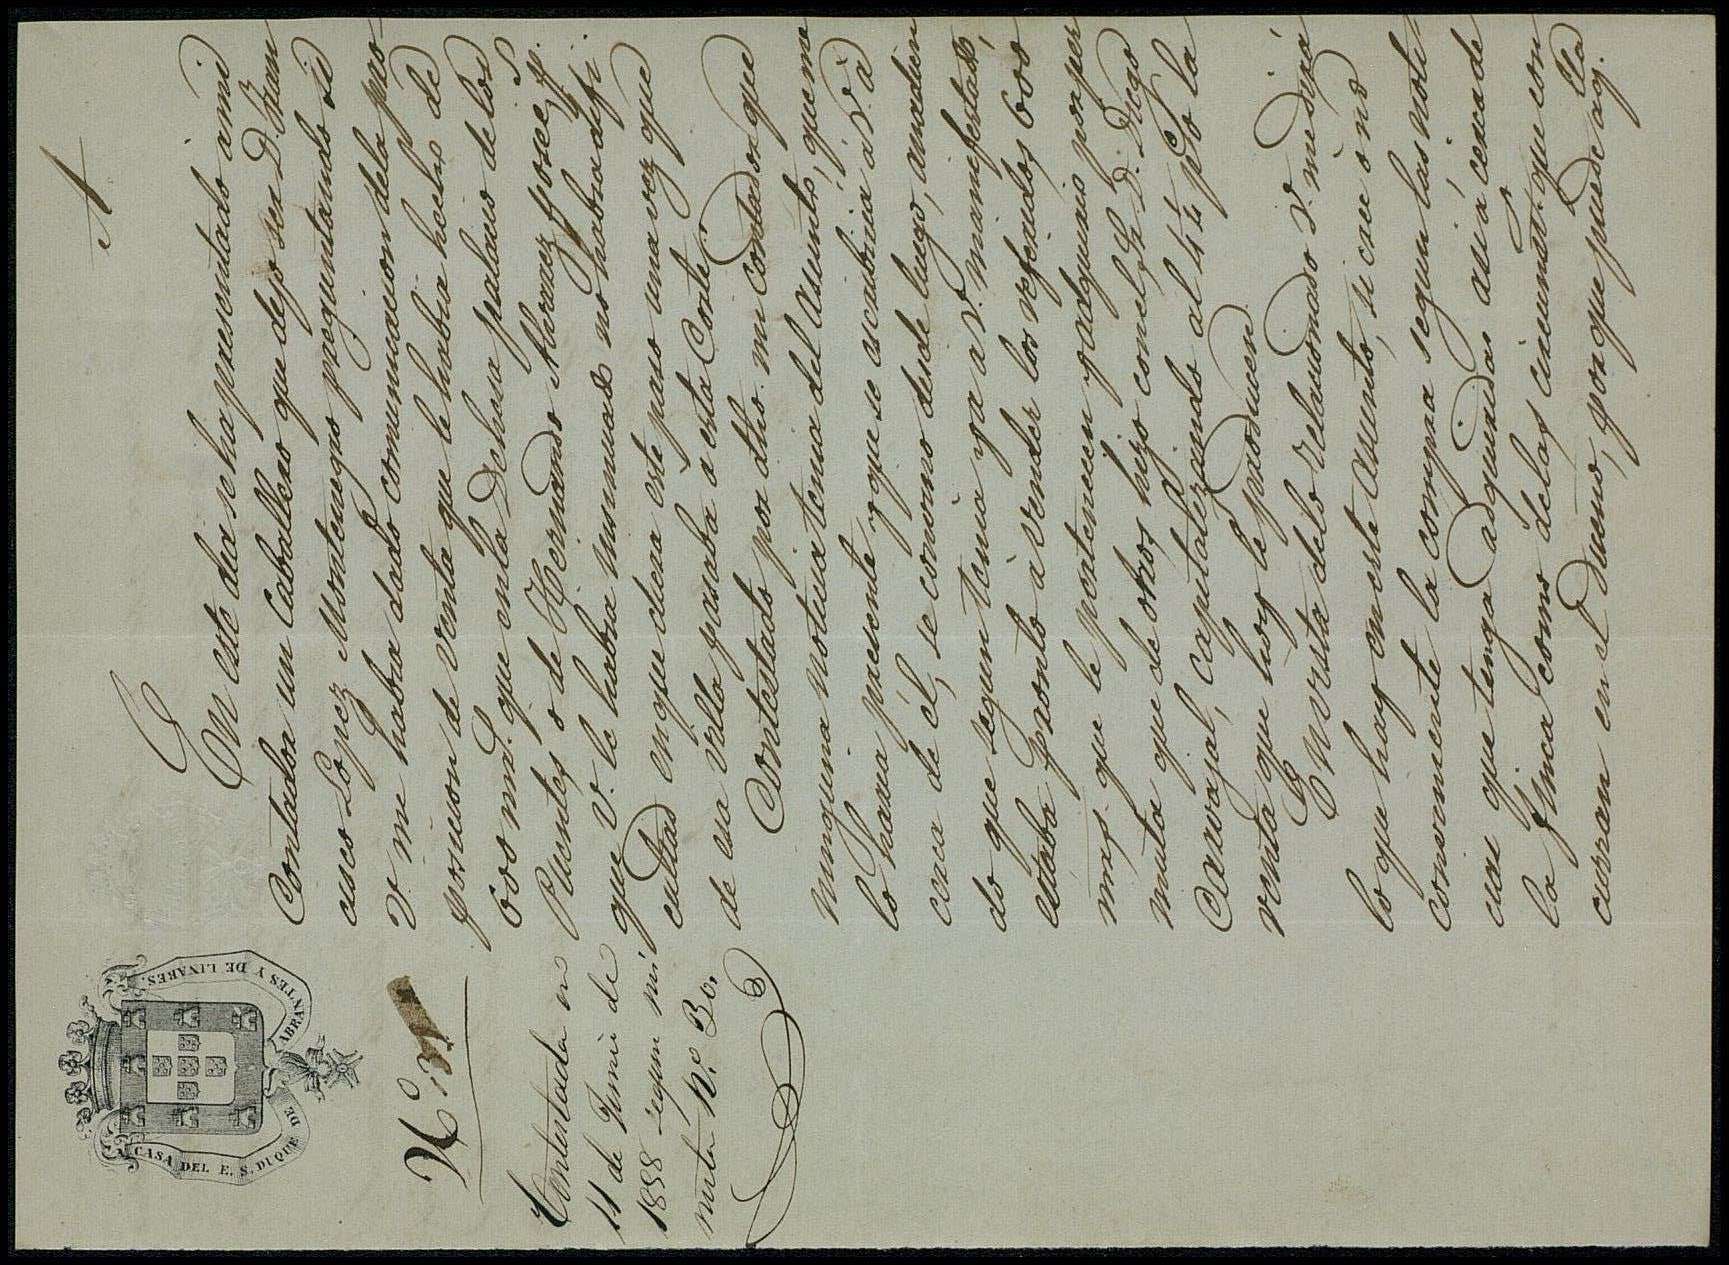 CASA DEL E. S. DUQUE DE ABRANTES Y DE LINARES.
N.º
Contestada en
11 de Junio de
1858 segun mi
nuta N.º 30.
En este dia se ha presentado a mi
Contador un Caballero que dijo ser D. Fran
cisco Lopez Montenegro preguntando si
V. me habia dado comunicacion de la pro-
posicion de venta que le habia hecho de
600 rs. que en la Dehesa palacio de los
Puentes o de Hernando Alvarez posee y
que V. le habia insinuado no habia difi
cultad en que diera este paso una vez que
de su villa pasaba a esta Corte.
Contestado por dho. mi Contador que
ninguna noticia tenia del asunto, que me
lo haria presente y que se escribiria a V. a
cerca de el, se conformo desde luego, añadien
do que segun tenia ya a V. manifestado
estaba pronto a vender los referidos 600
mrs. que le pertenecen y adquirió por per
muta que de otros hizo con el Sr. D. Diego
Carvajal, capitalizando al 4 % p.º la
renta que hoy le producen
En vista de lo relacionado V. me dirá
lo que hay en este asunto, si cree o no
conveniente la compra segun las noti
cias que tenga adquiridas asi a cerca de
la finca como de las circunst.s que con
curran en el Dueño, por que puede aq.lla